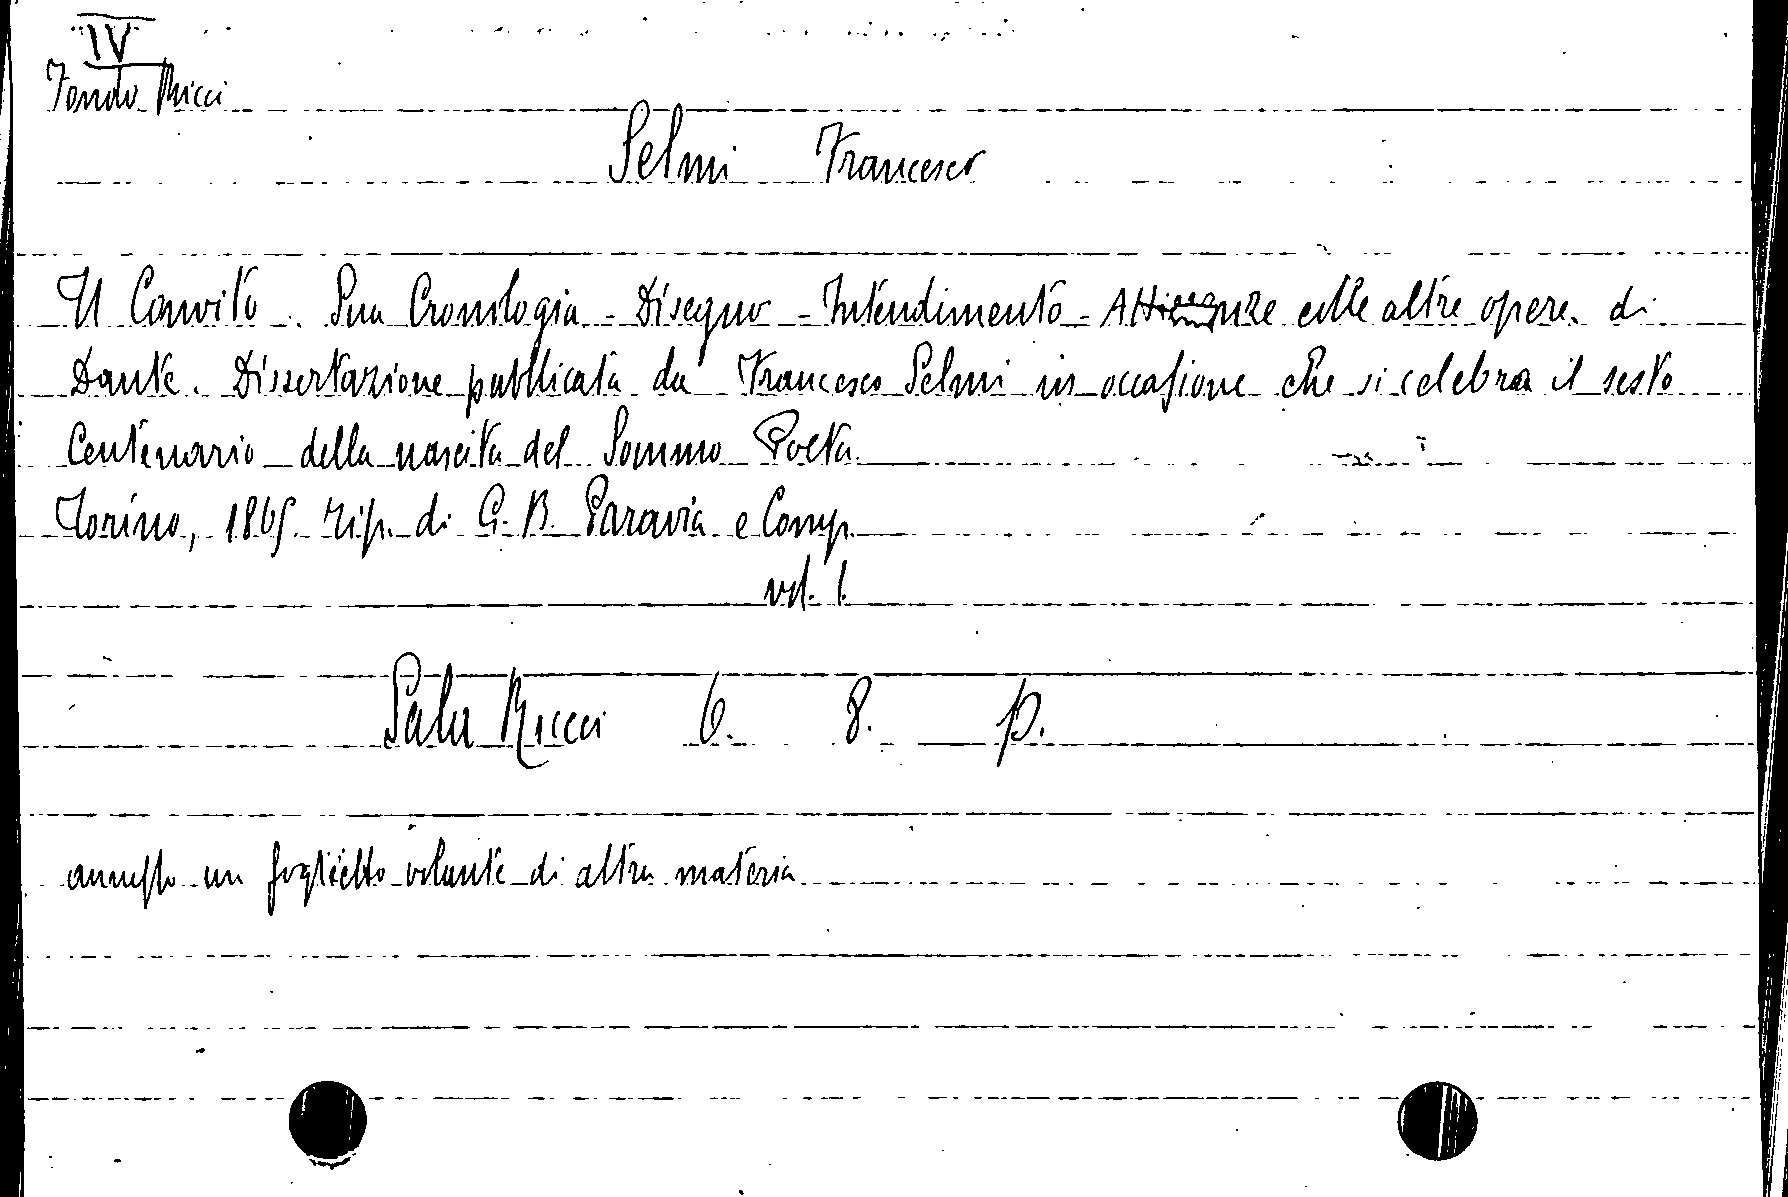 IV
Fondo Ricci
Selmi Francesco
Il Convito. Sua Cronologia - Disegno - Intendimento - Attinenze colle altre opere di
Dante. Dissertazione pubblicata da Francesco Selmi in occasione che si celebra il sesto
Centenario della nascita del Sommo Poeta
Torino, 1865. Tip. di G. B. Paravia e Comp.
vol. 1.
Sala Ricci 6. 8. p.
annesso un foglietto volante di altra materia